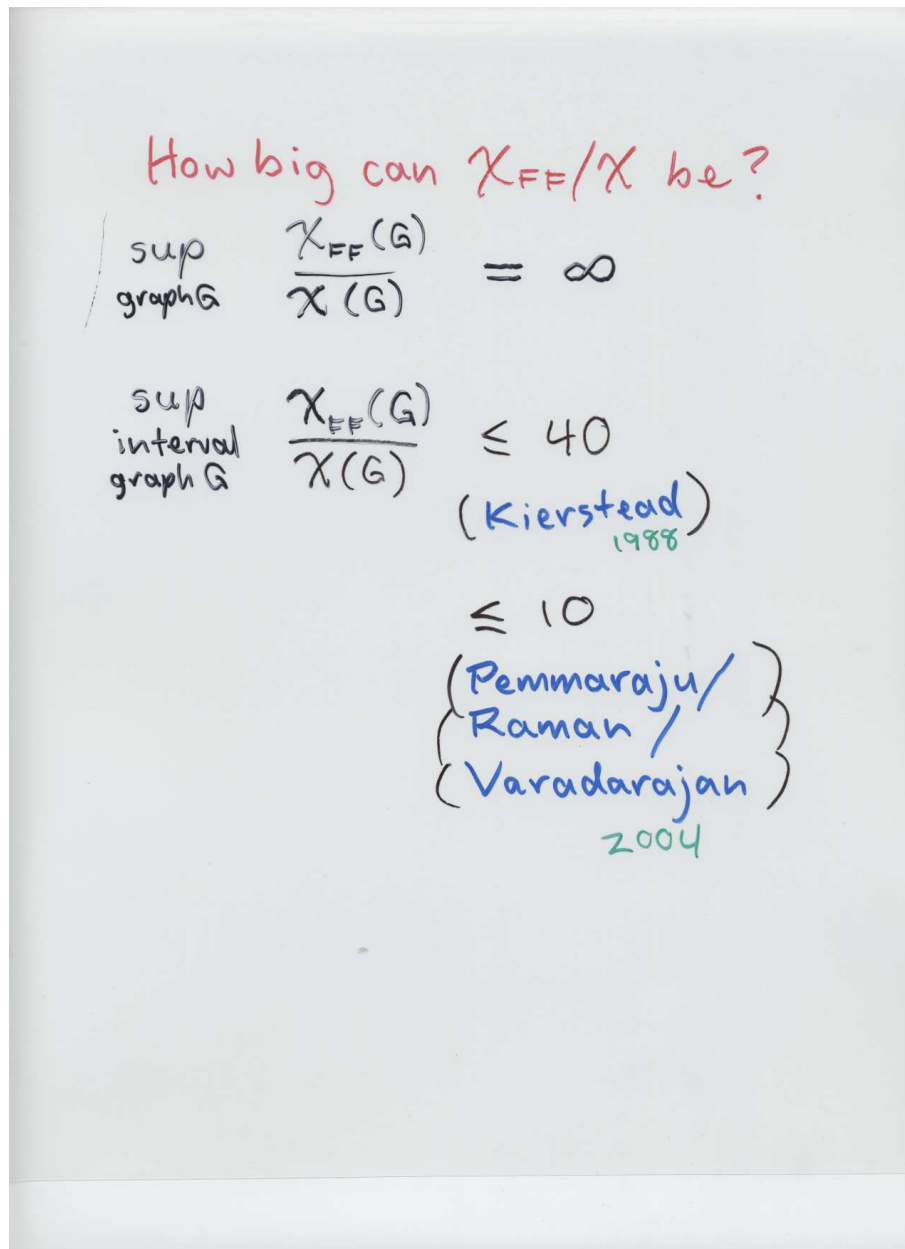 How big can χFF/χ be?
sup graph G χFF(G)/χ(G) = ∞
sup interval graph G χFF(G)/χ(G) ≤ 40
(Kierstead)
1988
≤ 10
(Pemmaraju/
Raman/
Varadarajan)
2004